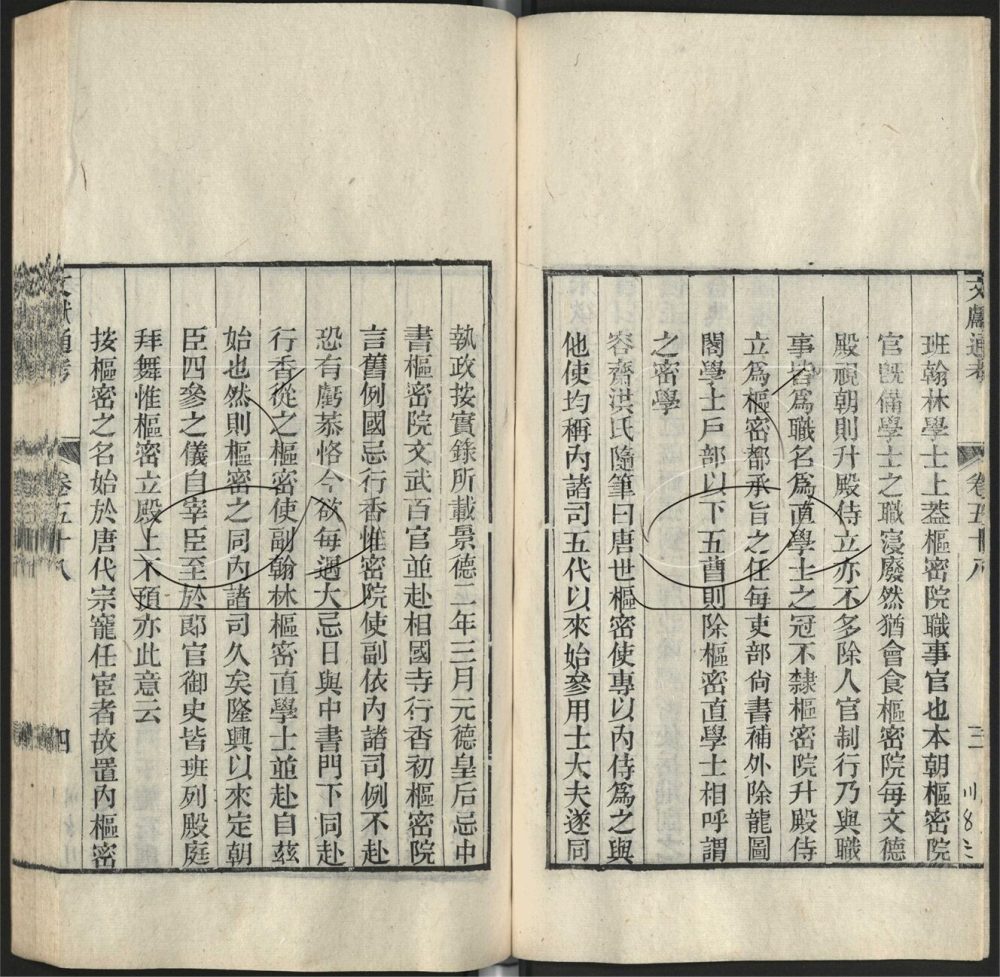 文獻通考 卷五十八 三
班翰林學士上蓋樞密院職事官也本朝樞密院
官旣備學士之職寖廢然猶會食樞密院每文德
殿視朝則升殿侍立亦不多除人官制行乃與職
事皆爲職名爲直學士之冠不隸樞密院升殿侍
立爲樞密都承旨之任每吏部尙書補外除龍圖
閣學士戶部以下五曹則除樞密直學士相呼謂
之密學
容齋洪氏隨筆曰唐世樞密使專以內侍爲之與
他使均稱內諸司五代以來始參用士大夫遂同
執政按實錄所載景德二年三月元德皇后忌中
書樞密院文武百官並赴相國寺行香初樞密院
言舊例國忌行香惟樞密院使副依內諸司例不赴
恐有虧恭恪今欲每遇大忌日與中書門下同赴
行香從之樞密使副翰林樞密直學士並赴自茲
始也然則樞密之同內諸司久矣隆興以來定朝
臣四參之儀自宰臣至於郎官御史皆班列殿庭
拜舞惟樞密立殿上不預亦此意云
按樞密之名始於唐代宗寵任宦者故置內樞密
文獻通考 卷五十八 四